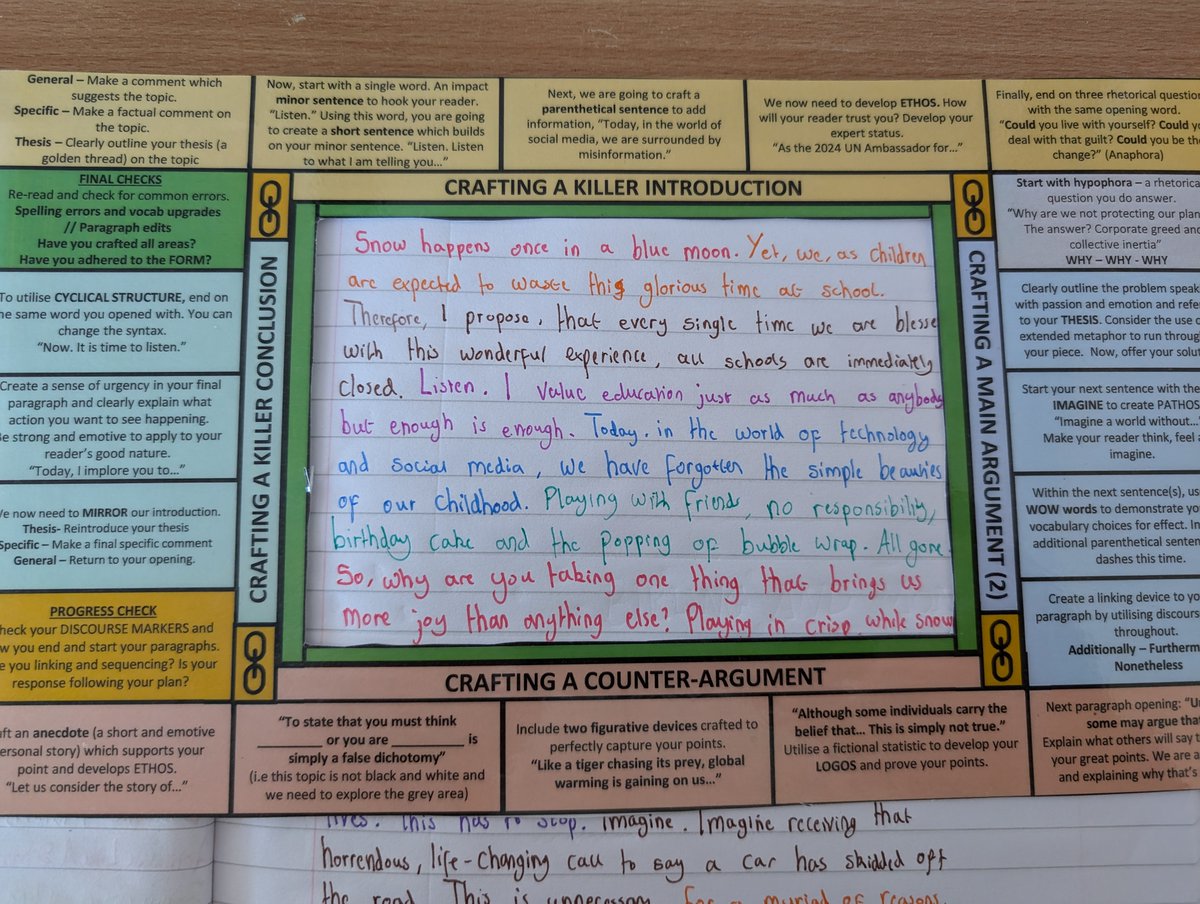 General – Make a comment which
suggests the topic.
Specific – Make a factual comment on
the topic.
Thesis – Clearly outline your thesis (a
golden thread) on the topic
Now, start with a single word. An impact
minor sentence to hook your reader.
“Listen.” Using this word, you are going
to create a short sentence which builds
on your minor sentence. “Listen. Listen
to what I am telling you…”
Next, we are going to craft a
parenthetical sentence to add
information, “Today, in the world of
social media, we are surrounded by
misinformation.”
We now need to develop ETHOS. How
will your reader trust you? Develop your
expert status.
“As the 2024 UN Ambassador for…”
Finally, end on three rhetorical question
with the same opening word.
“Could you live with yourself? Could yo
deal with that guilt? Could you be the
change?” (Anaphora)
CRAFTING A KILLER INTRODUCTION
FINAL CHECKS
Re-read and check for common errors.
Spelling errors and vocab upgrades
// Paragraph edits
Have you crafted all areas?
Have you adhered to the FORM?
To utilise CYCLICAL STRUCTURE, end on
he same word you opened with. You can
change the syntax.
“Now. It is time to listen.”
Create a sense of urgency in your final
paragraph and clearly explain what
action you want to see happening.
Be strong and emotive to apply to your
reader’s good nature.
“Today, I implore you to…”
We now need to MIRROR our introduction.
Thesis- Reintroduce your thesis
Specific – Make a final specific comment
General – Return to your opening.
PROGRESS CHECK
heck your DISCOURSE MARKERS and
ow you end and start your paragraphs.
e you linking and sequencing? Is your
response following your plan?
CRAFTING A KILLER CONCLUSION
Snow happens once in a blue moon. Yet, we, as children
are expected to waste this glorious time at school.
Therefore, I propose, that every single time we are blesse
with this wonderful experience, all schools are immediately
closed. Listen. I value education just as much as anybody
but enough is enough. Today. in the world of technology
and social media, we have forgotten the simple beauties
of our childhood. Playing with friends, no responsibility,
birthday cake and the popping of bubble wrap. All gone.
So, why are you taking one thing that brings us
more joy than anything else? Playing in crisp, while snow
CRAFTING A MAIN ARGUMENT (2)
Start with hypophora – a rhetorica
question you do answer.
“Why are we not protecting our plan
The answer? Corporate greed and
collective inertia”
WHY – WHY - WHY
Clearly outline the problem speak
with passion and emotion and refe
to your THESIS. Consider the use o
extended metaphor to run throug
your piece. Now, offer your solut
Start your next sentence with the
IMAGINE to create PATHOS
“Imagine a world without…”
Make your reader think, feel a
imagine.
Within the next sentence(s), us
WOW words to demonstrate yo
vocabulary choices for effect. In
additional parenthetical senten
dashes this time.
Create a linking device to yo
paragraph by utilising discours
throughout.
Additionally – Furtherm
Nonetheless
CRAFTING A COUNTER-ARGUMENT
aft an anecdote (a short and emotive
ersonal story) which supports your
point and develops ETHOS.
“Let us consider the story of…”
“To state that you must think
________ or you are _________ is
simply a false dichotomy”
(i.e this topic is not black and white and
we need to explore the grey area)
Include two figurative devices crafted to
perfectly capture your points.
“Like a tiger chasing its prey, global
warming is gaining on us…”
“Although some individuals carry the
belief that… This is simply not true.”
Utilise a fictional statistic to develop your
LOGOS and prove your points.
Next paragraph opening: “Un
some may argue that
Explain what others will say t
your great points. We are a
and explaining why that’s
lives. This has to stop. Imagine. Imagine receiving that
horrendous, life-changing call to say a car has skidded off
the road. This is unnecessary. For a myriad of reasons.